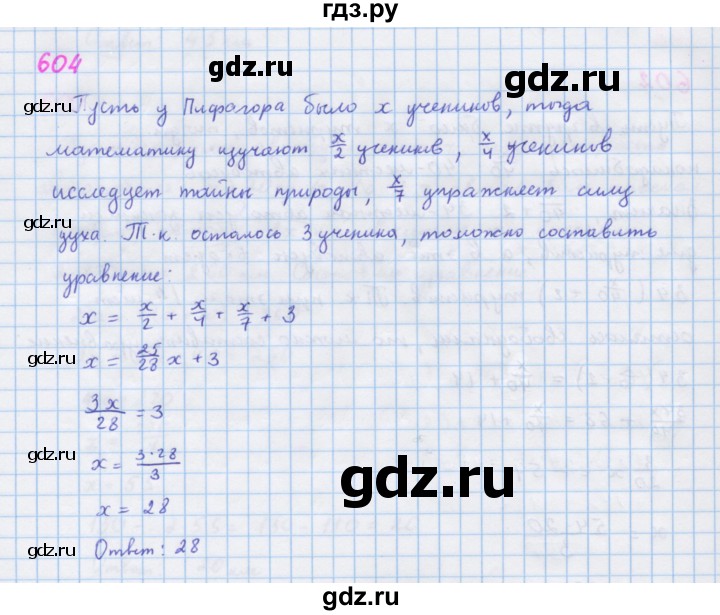 гдз.ру
604
gdz.ru
Пусть у Пифагора было x учеников, тогда
gdz.ru
математику изучают x/2 учеников, x/4 учеников
исследует тайны природы, x/7 упражняет силу
gdz.ru
духа. Т.к. осталось 3 ученика, то можно составить
уравнение:
gdz.ru
x = x/2 + x/4 + x/7 + 3
gdz.ru
x = 25/28 x + 3
gdz.ru
3x/28 = 3
gdz.ru
x = 3·28/3
gdz.ru
x = 28
gdz.ru
Ответ: 28
gdz.ru
gdz.ru